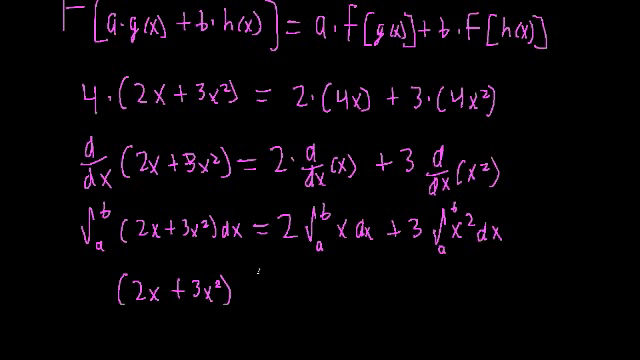 F[a·g(x) + b·h(x)] = a·f[g(x)] + b·F[h(x)]
4·(2x + 3x²) = 2·(4x) + 3·(4x²)
d/dx (2x + 3x²) = 2·d/dx (x) + 3 d/dx (x²)
∫ₐᵇ (2x + 3x²) dx = 2 ∫ₐᵇ x dx + 3 ∫ₐᵇ x² dx
(2x + 3x²)